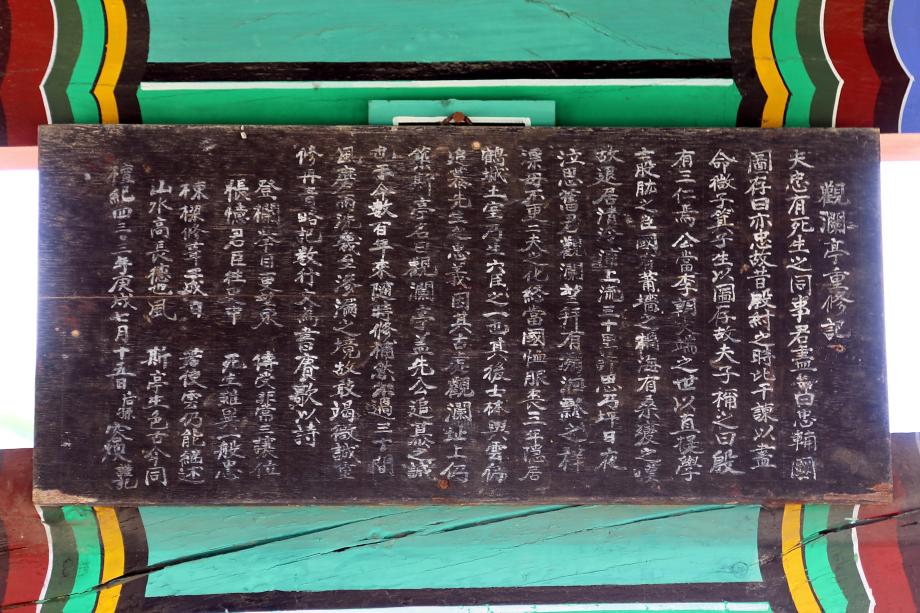 觀瀾亭重修記
夫忠有死生之同事君盡節曰忠輔國
圖存曰亦忠故昔殷紂之時比干諫以盡
命微子箕子生以圖存故夫子稱之曰殷
有三仁焉公當李朝之世以直學
士股肱之臣國有蕭墻之禍海有桑變之嘆
故退居淸冷浦上流三十里許思乃坪日夜
泣思舊君觀瀾而拜有
不更二夫之化終當國恤服喪三年隱居
鶴城土室乃生六臣之一也其後士林與雲仍
追慕先生之忠義因其古處觀瀾址上仍
築斯亭名曰觀瀾亭盖先公追慕之誠
也于今數百年來隨時修補然不過三間
風磨雨洗幾至之境故殫竭微誠重
修再略記數行又爲書賡歌以詩
登欄擧目更尋東 傳受非當三讓位
悵憶君臣往事中 死生雖異一般忠
棟樑修葺成日 若使雲仍能繼述
山水高長風 斯亭生色古今同
檀紀四三〇三年庚戌七月十五日 后孫 謹記